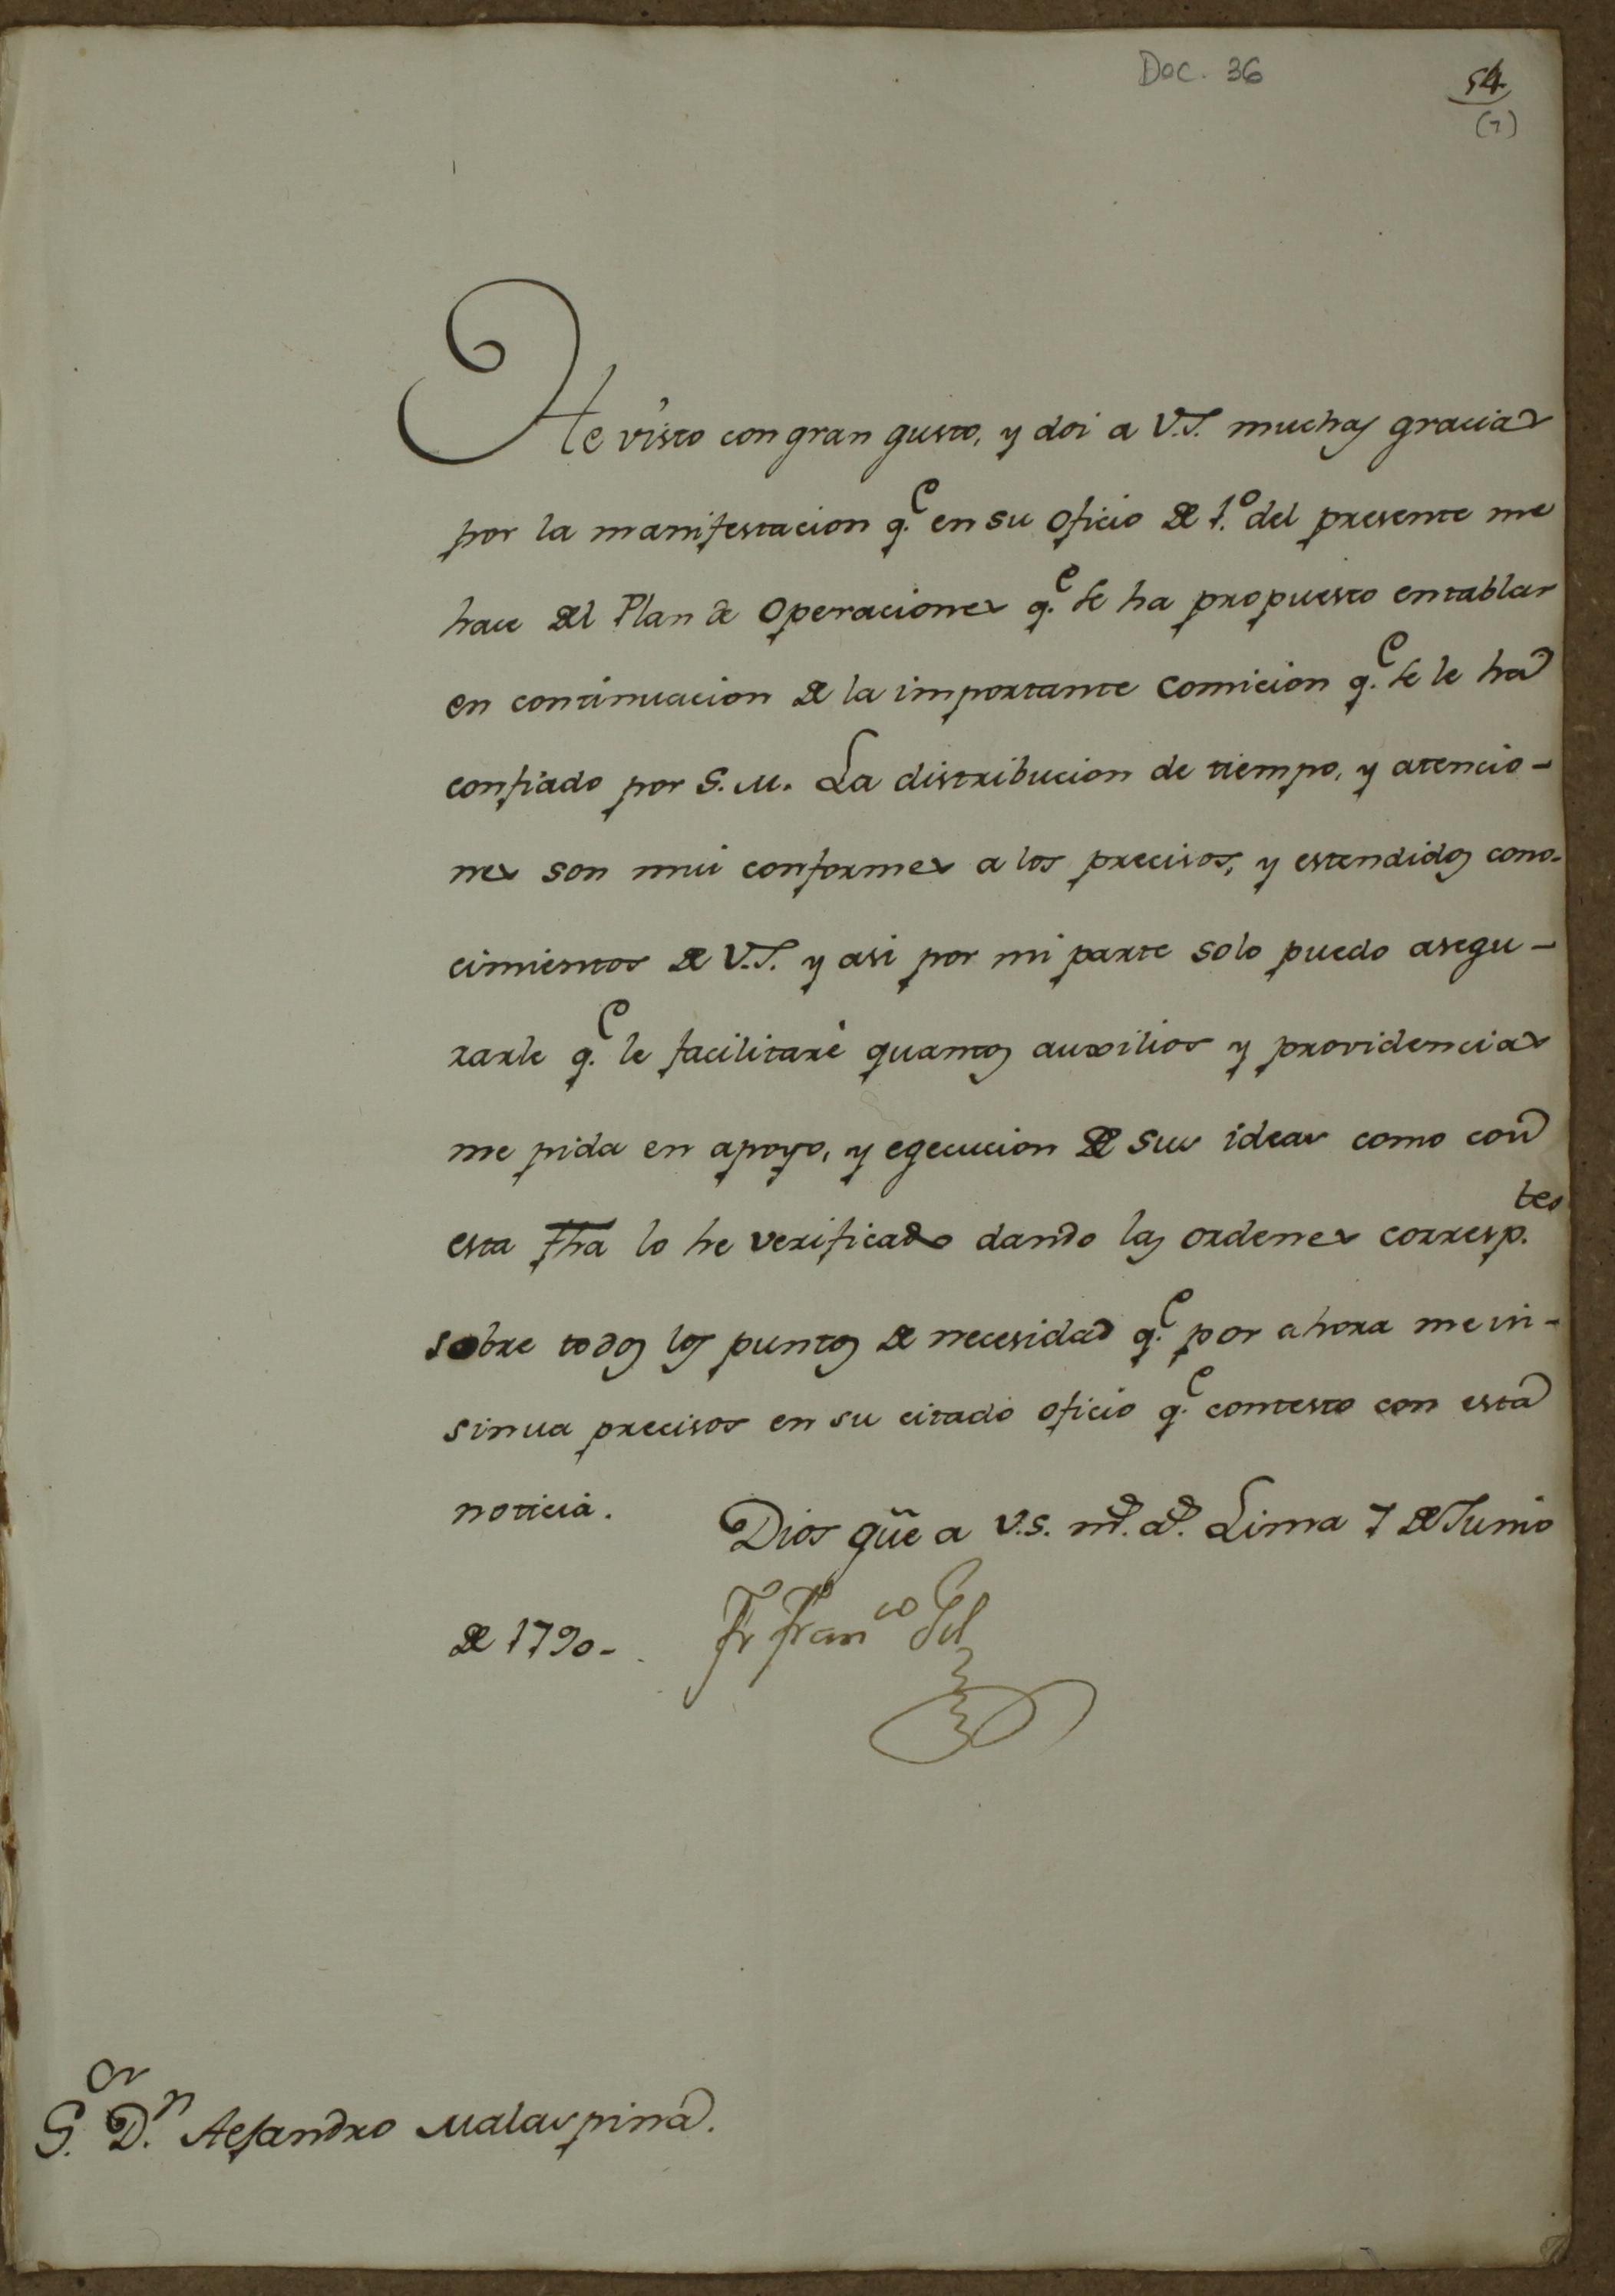 Doc. 36
54
(7)
He visto con gran gusto, y doi a V.S. muchas gracias
por la manifestacion q.e en su oficio de 1.o del presente me
hace del Plan de Operaciones q.e se ha propuesto entablar
en continuacion de la importante comicion q.e se le ha
confiado por S.M. La distribucion de tiempo, y atencio-
nes son mui conformes a los precisos, y estendidos cono-
cimientos de V.S. y asi por mi parte solo puedo asegu-
rarle q.e le facilitaré quantos auxilios y providencias
me pida en apoyo, y egecucion de sus ideas como con
esta fha lo he verificado dando las ordenes corresp.tes
sobre todos los puntos de necesidad q.e por ahora me in-
sinua precisos en su citado oficio q.e contesto con esta
noticia. Dios gũe a V.S. m.s a.s Lima 7 de Junio
de 1790-
Fr Fran.co Gil
S.or D.n Alejandro Malaspina.